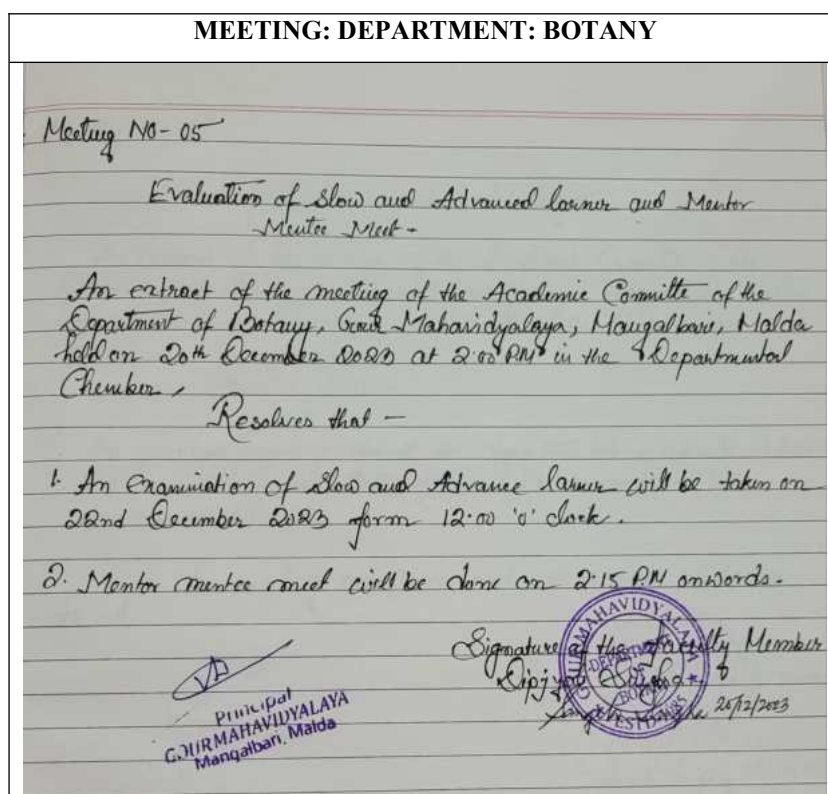 MEETING: DEPARTMENT: BOTANY
Meeting No- 05
Evaluation of Slow and Advanced larner and Mentor
Mentee Meet -
An extract of the meeting of the Academic Committe of the
Department of Botany, Gour Mahavidyalaya, Mangalbari, Malda
held on 20th December 2023 at 2.00 P.M in the Departmental
Chember,
Resolves that —
1. An Examination of Slow and Advance larner will be taken on
22nd December 2023 form 12.00 'o' clock.
2. Mentor mentee meet will be done on 2.15 P.M onwords.
Signature of the Faculty Member
20/12/2023
Principal
GOURMAHAVIDYALAYA
Mangalbari, Malda
DEPARTMENT
BOTANY